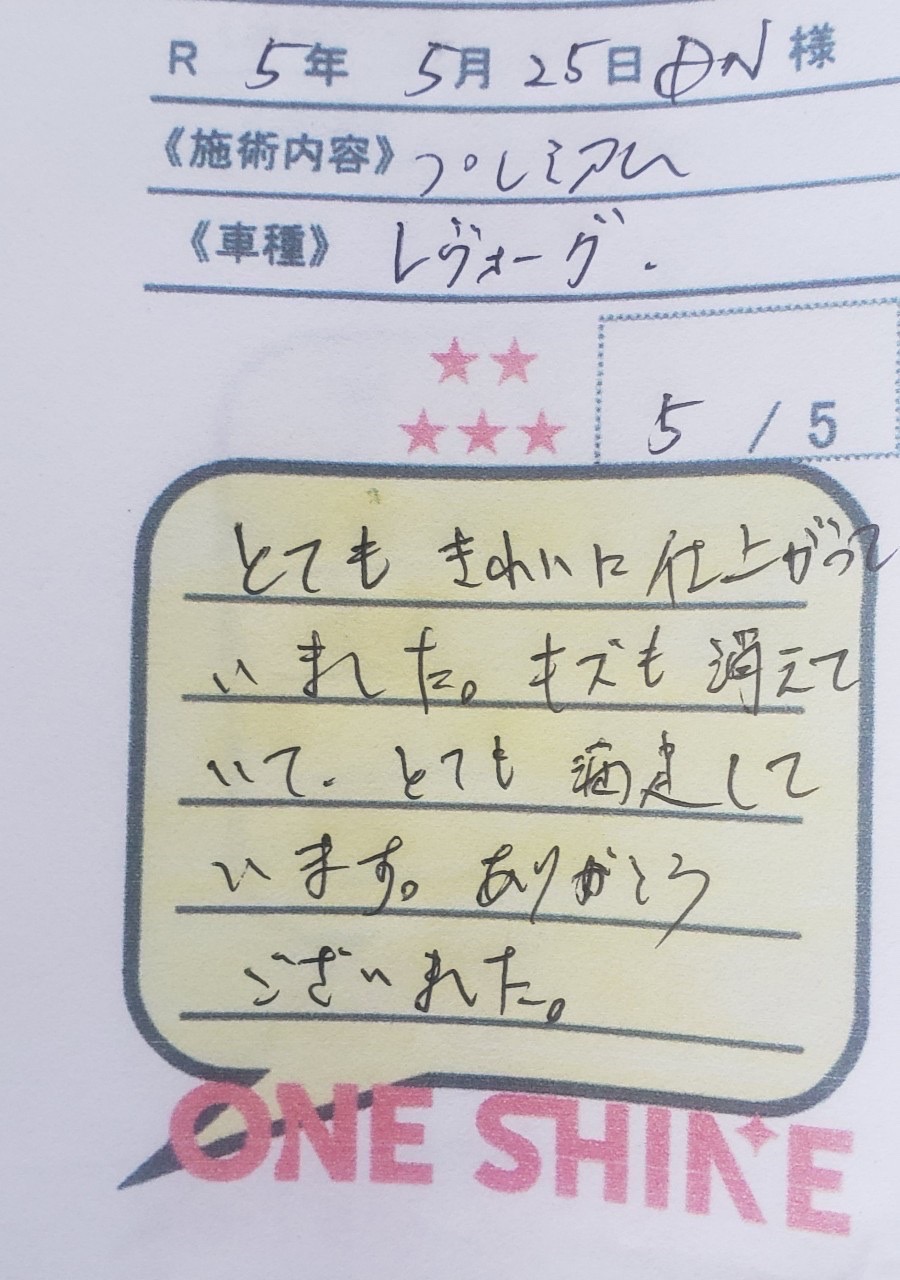 R 5年 5月 25日 様
《施術内容》プレミアム
《車種》 レヴォーグ.
5 / 5
とても きれいに 仕上がって
いました。キズも 消えて
いて. とても 満足して
います。ありがとう
ございました。
ONE SHINE